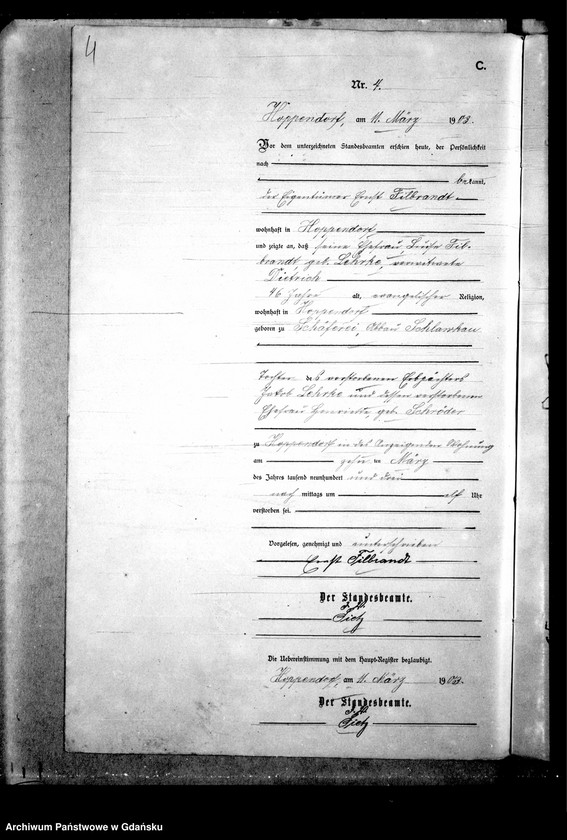 4
C.
Nr. 4.
Hoppendorf, am 11. März 1903.
Vor dem unterzeichneten Standesbeamten erschien heute, der Persönlichkeit
nach
bekannt,
der Eigentümer Ernst Filbrandt
wohnhaft in Hoppendorf
und zeigte an, daß seine Ehefrau, Fil-
brandt geb. Lehrke, verwitwete
Dietrich
46 Jahre alt, evangelischer Religion,
wohnhaft in Hoppendorf
geboren zu Schäferei, Abbau Schlawkau
Tochter des verstorbenen Erbpächters
Jakob Lehrke und dessen verstorbenen
Ehefrau Henriette, geb. Schröder
zu Hoppendorf in des Anzeigenden Wohnung
am zehn ten März
des Jahres tausend neunhundert und drei
nach mittags um elf Uhr
verstorben sei.
Vorgelesen, genehmigt und unterschrieben
Ernst Filbrandt
Der Standesbeamte.
Tietz
Die Uebereinstimmung mit dem Haupt-Register beglaubigt.
Hoppendorf, am 11. März 1903.
Der Standesbeamte.
Tietz
Archiwum Państwowe w Gdańsku